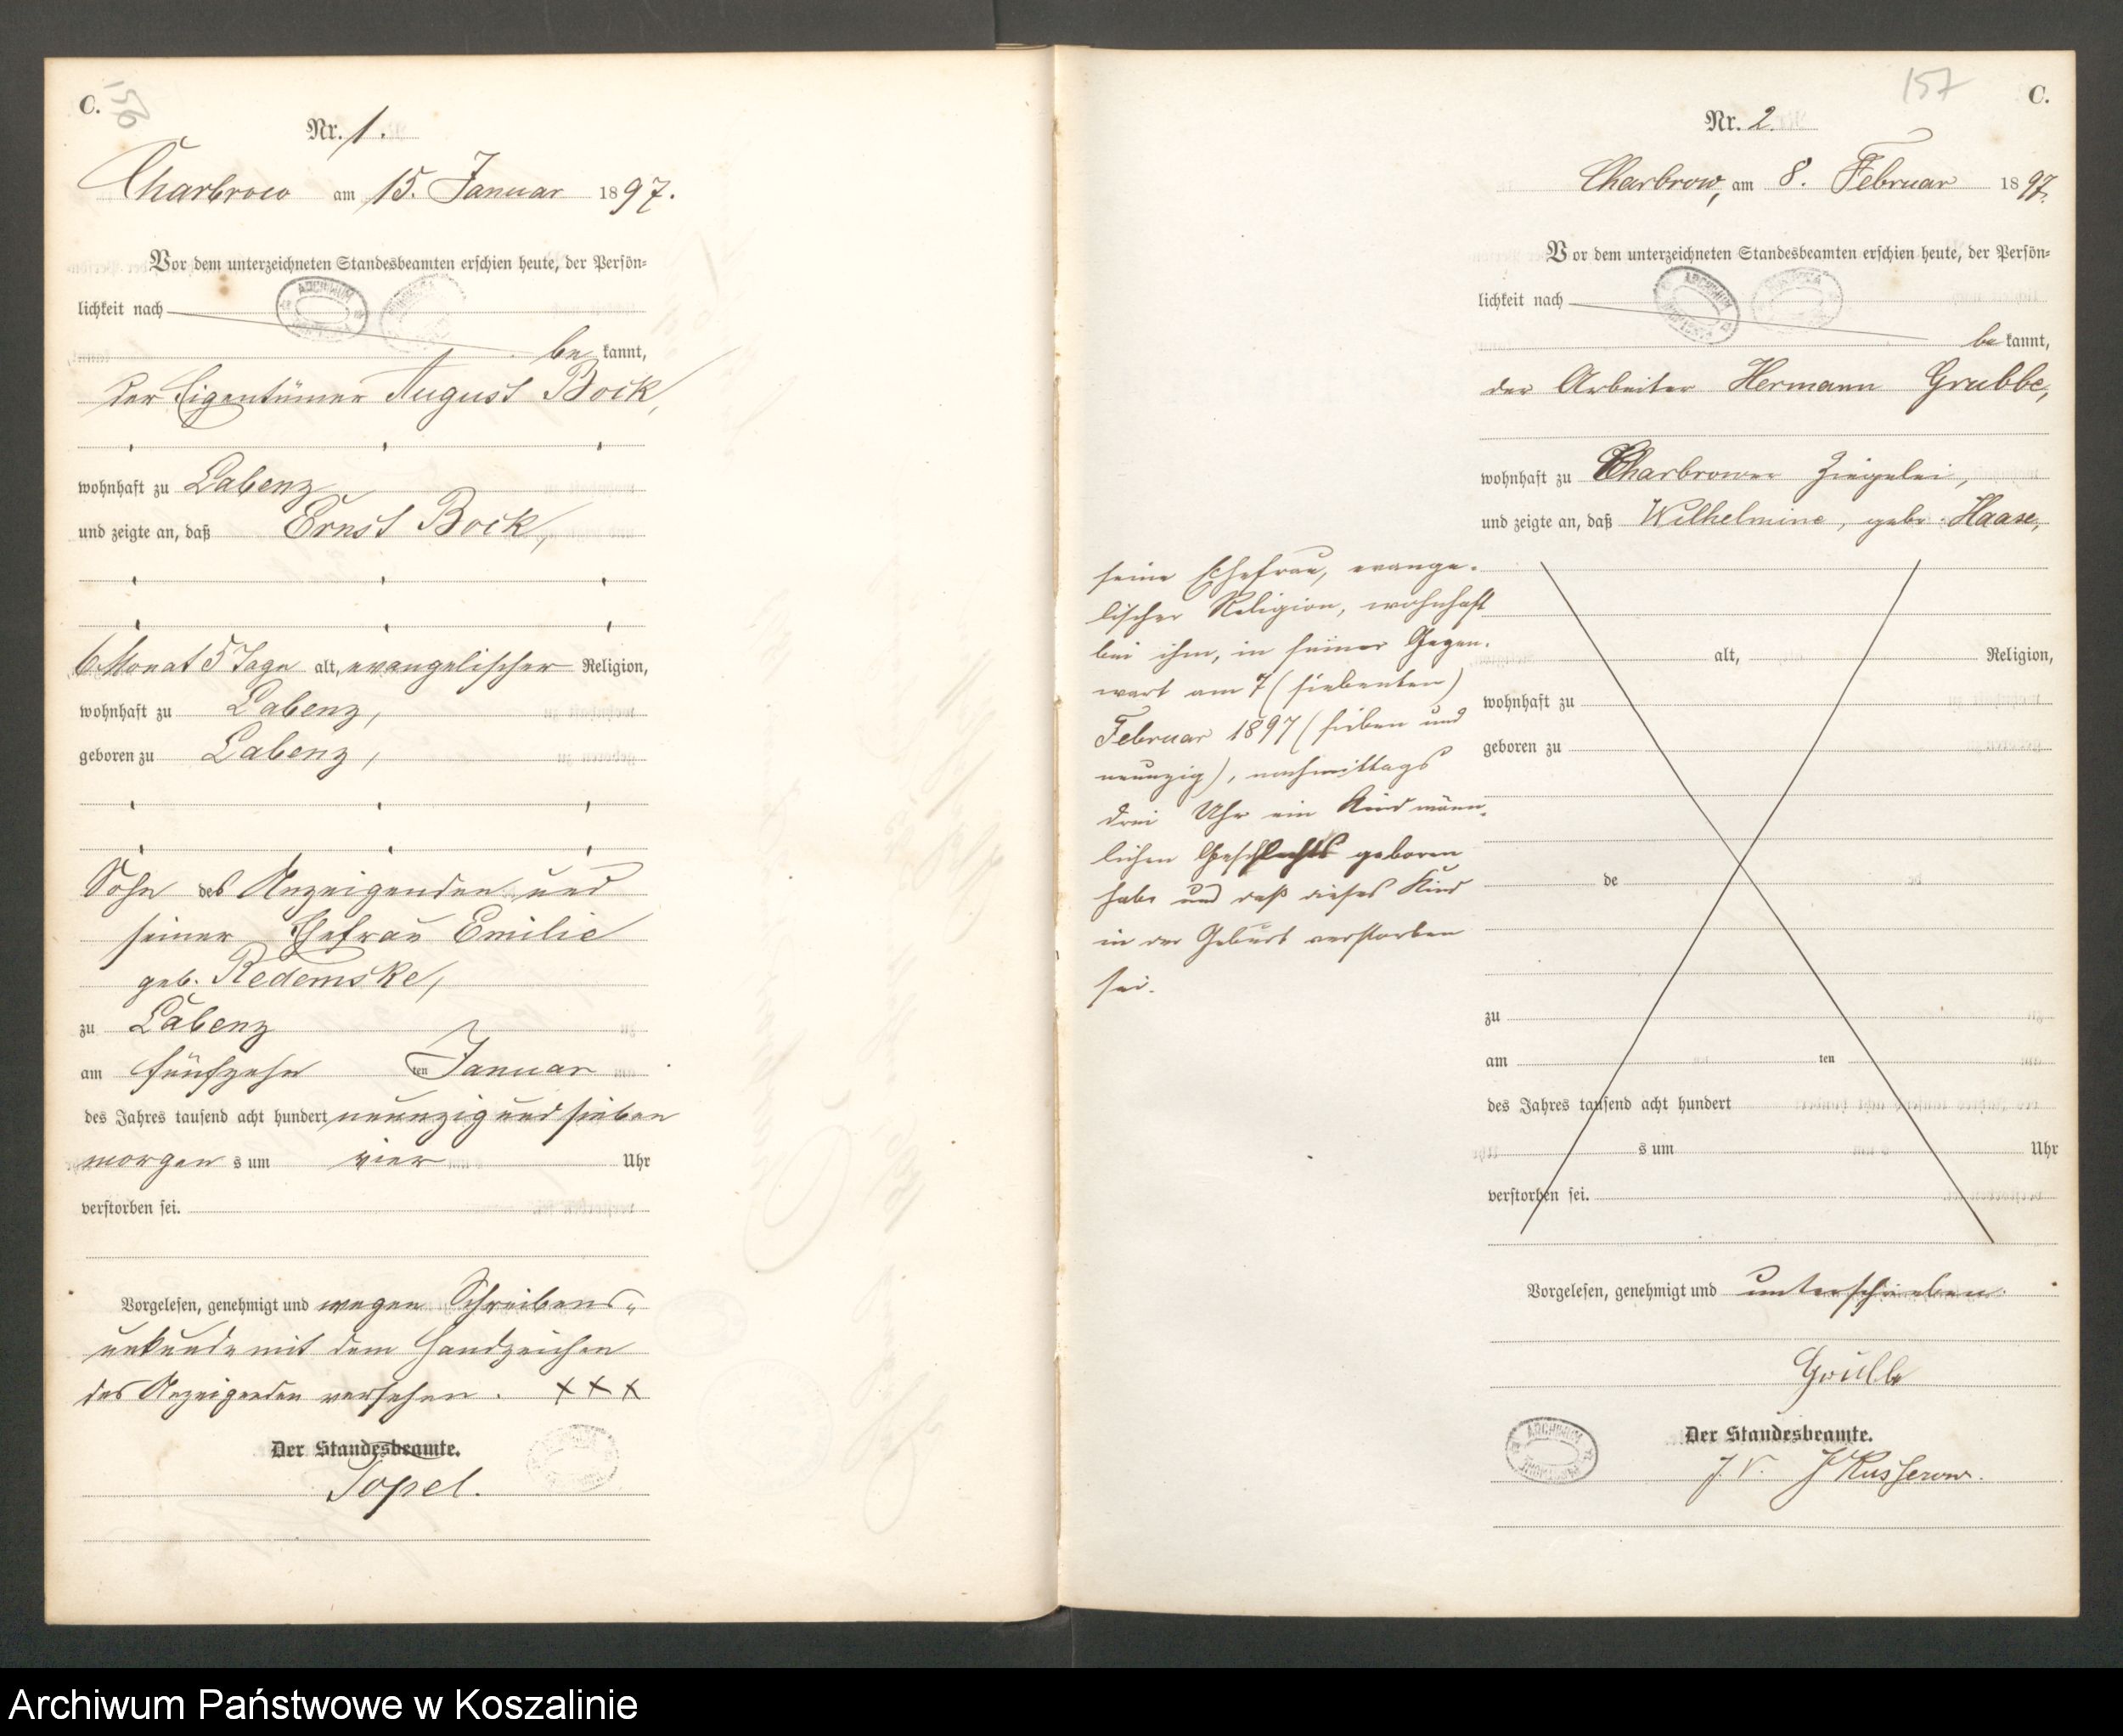 C.
156
Nr. 1.
Charbrow am 15. Januar 1897.
Vor dem unterzeichneten Standesbeamten erschien heute, der Persön-
lichkeit nach
be kannt,
der Eigentümer August Bock,
wohnhaft zu Labenz
und zeigte an, daß Ernst Bock,
6 Monat 5 Tage alt, evangelischer Religion,
wohnhaft zu Labenz,
geboren zu Labenz,
Sohn des Anzeigenden und
seiner Ehefrau Emilie
geb. Redemske,
zu Labenz
am fünfzehn ten Januar
des Jahres tausend acht hundert neunzig und sieben
morgen s um vier Uhr
verstorben sei.
Vorgelesen, genehmigt und wegen Schreibens-
unkunde mit dem Handzeichen
des Anzeigenden versehen. XXX
Der Standesbeamte.
Topel.
157
C.
Nr. 2.
Charbrow, am 8. Februar 1897.
Vor dem unterzeichneten Standesbeamten erschien heute, der Persön-
lichkeit nach
be kannt,
der Arbeiter Hermann Grubbe,
wohnhaft zu Charbrower Ziegelei,
und zeigte an, daß Wilhelmine, geb. Haase,
seine Ehefrau, evange-
lischer Religion, wohnhaft
bei ihm, in seiner Gegen-
wart am 7 (siebenten)
Februar 1897 (sieben und
neunzig), nachmittags
drei Uhr ein Kind männ-
lichen Geschlechts geboren
habe und daß dieses Kind
in der Geburt verstorben
sei.
alt, Religion,
wohnhaft zu
geboren zu
de
zu
am ten
des Jahres tausend acht hundert
s um Uhr
verstorben sei.
Vorgelesen, genehmigt und unterschrieben.
Grubbe
ARCHIWUM
Der Standesbeamte.
J. V. Kusserow.
Archiwum Państwowe w Koszalinie